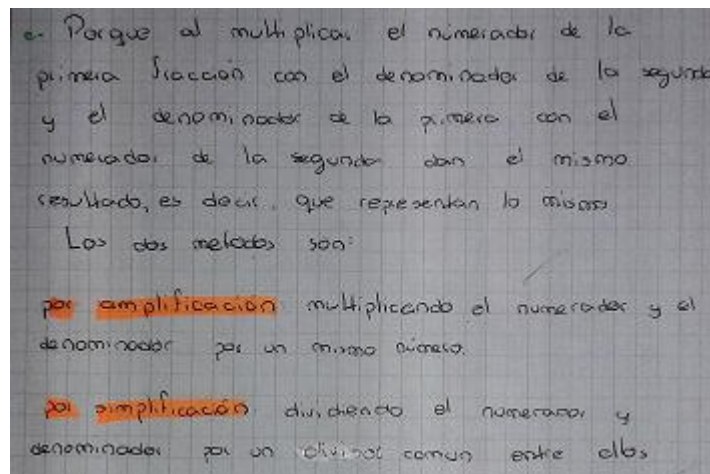 c- Porque al multiplicar el numerador de la
primera fracción con el denominador de la segunda
y el denominador de la primera con el
numerador de la segunda dan el mismo
resultado, es decir, que representan lo mismo
Los dos metodos son:
por amplificación multiplicando el numerador y el
denominador por un mismo número.
por simplificación dividiendo el numerador y
denominador por un divisor comun entre ellos